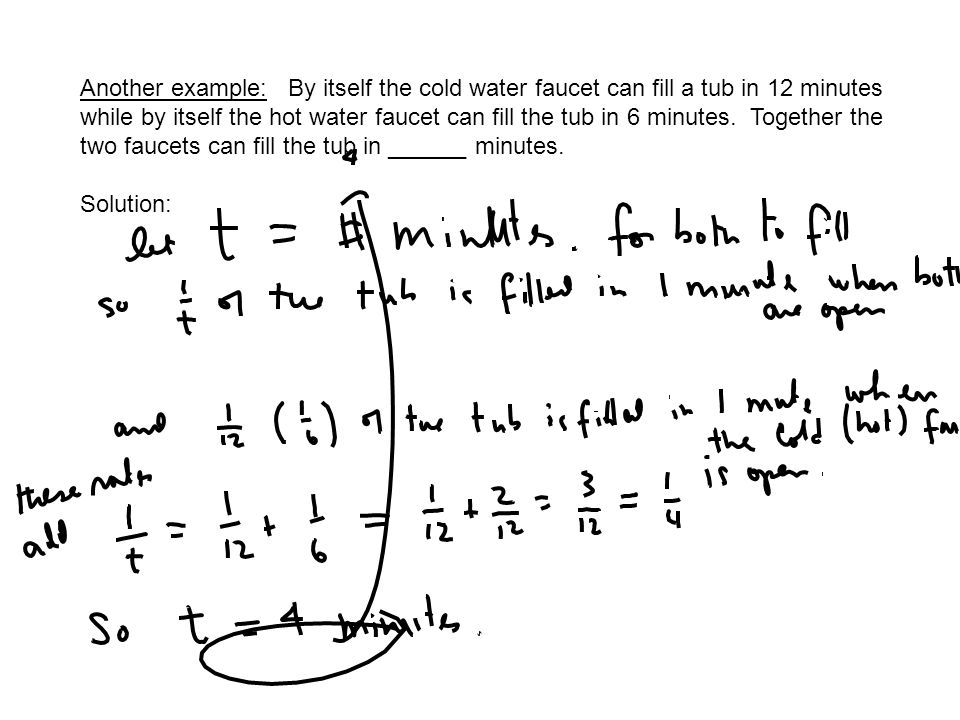 Another example: By itself the cold water faucet can fill a tub in 12 minutes
while by itself the hot water faucet can fill the tub in 6 minutes. Together the
two faucets can fill the tub in ______ minutes.
4
Solution:
let t = # minutes. for both to fill
so 1/t of the tub is filled in 1 minute when both
are open
and 1/12 (1/6) of the tub is filled in 1 minute when
the cold (hot)
is open.
these rates
add 1/t = 1/12 + 1/6 = 1/12 + 2/12 = 3/12 = 1/4
So t = 4 minutes.